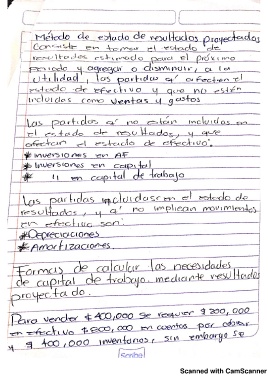 Método de estado de resultados proyectados
Consiste en tomar el estado de
resultados estimado para el próximo
periodo y agregar o disminuir, a la
utilidad, las partidas q' afecten el
estado de efectivo y que no estén
incluidos como ventas y gastos
Las partidas q' no están incluidos en
el estado de resultados, y que
afectan el estado de efectivo:
* Inversiones en AF
* Inversiones en capital
* " en capital de trabajo
Las partidas incluidas en el estado de
resultados, y q' no implican movimientos
en efectivo son:
* Depreciaciones
* Amortizaciones.
Formas de calcular las necesidades
de capital de trabajo mediante resultados
proyectado.
Para vender $400,000 se requier $200,000
en efectivo $800,000 en cuentas por cobrar
y $400,000 inventarios, sin embargo se
Scribe
Scanned with CamScanner